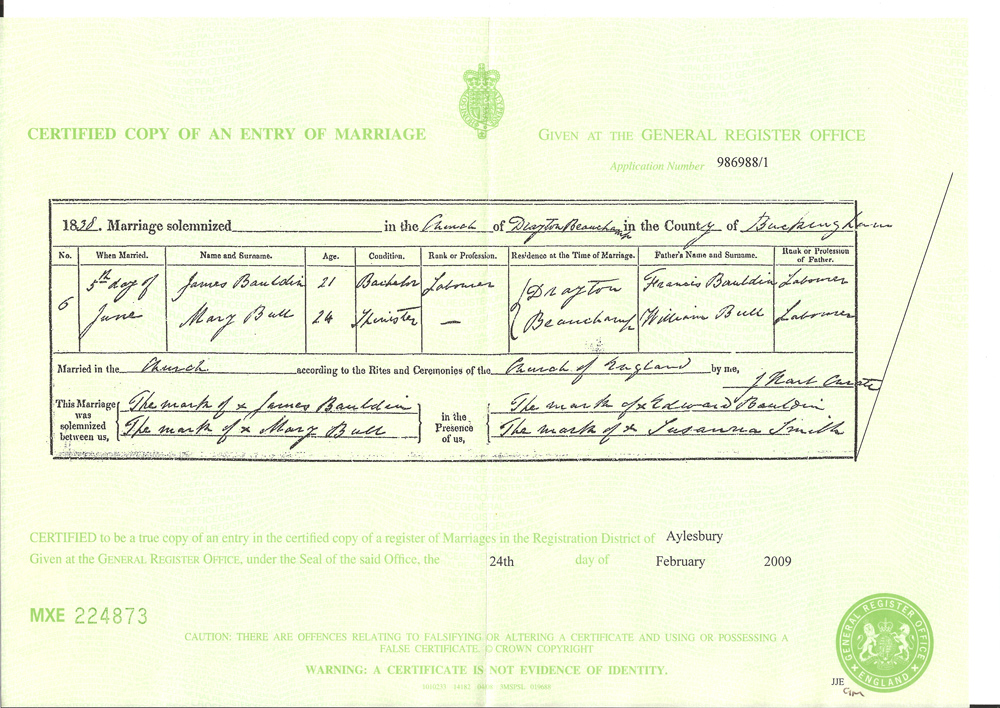 CERTIFIED COPY OF AN ENTRY OF MARRIAGE
GIVEN AT THE GENERAL REGISTER OFFICE
Application Number 986988/1
1838. Marriage solemnized in the Church of Drayton Beauchamp in the County of Buckingham
No. When Married. Name and Surname. Age. Condition. Rank or Profession. Residence at the Time of Marriage. Father's Name and Surname. Rank or Profession of Father.
6 5th day of James Bauldin 21 Bachelor Labourer Drayton Francis Bauldin Labourer
June Mary Bull 24 Spinster — Beauchamp William Bull Labourer
Married in the Church according to the Rites and Ceremonies of the Church of England by me,
J Hart Curate
This Marriage was solemnized between us, The mark of x James Bauldin
The mark of x Mary Bull
in the Presence of us, The mark of x Edward Bauldin
The mark of x Susanna Smith
CERTIFIED to be a true copy of an entry in the certified copy of a register of Marriages in the Registration District of Aylesbury
Given at the GENERAL REGISTER OFFICE, under the Seal of the said Office, the 24th day of February 2009
MXE 224873
CAUTION: THERE ARE OFFENCES RELATING TO FALSIFYING OR ALTERING A CERTIFICATE AND USING OR POSSESSING A
FALSE CERTIFICATE. © CROWN COPYRIGHT
WARNING: A CERTIFICATE IS NOT EVIDENCE OF IDENTITY.
GENERAL REGISTER OFFICE
ENGLAND
JJE